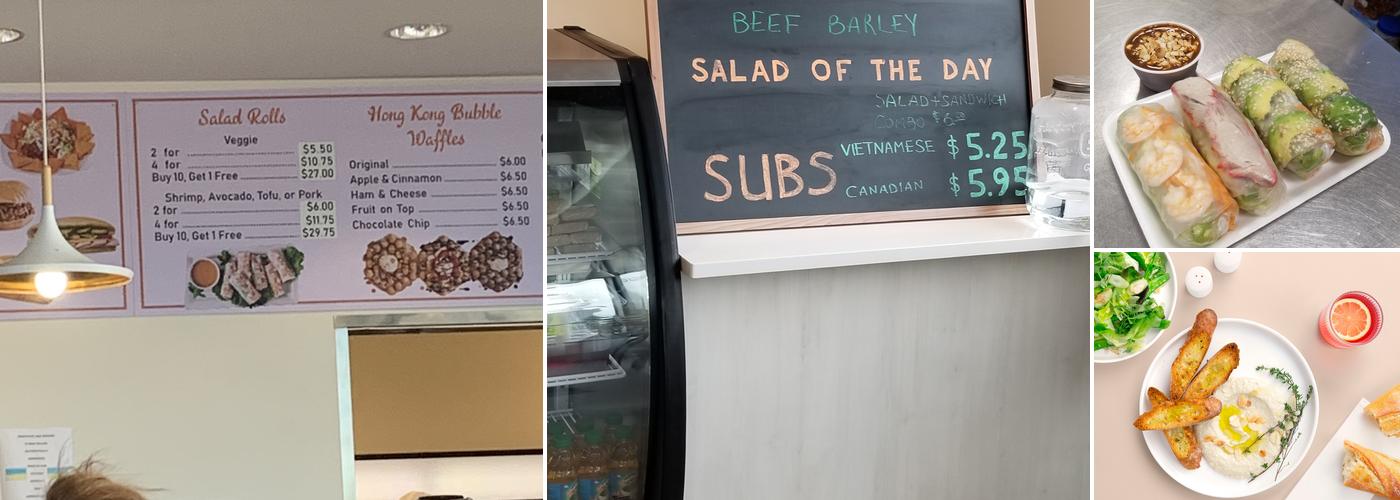 Salad Rolls
Veggie
2 for $5.50
4 for $10.75
Buy 10, Get 1 Free $27.00
Shrimp, Avocado, Tofu, or Pork
2 for $6.00
4 for $11.75
Buy 10, Get 1 Free $29.75
Hong Kong Bubble
Waffles
Original $6.00
Apple & Cinnamon $6.50
Ham & Cheese $6.50
Fruit on Top $6.50
Chocolate Chip $6.50
BEEF BARLEY
SALAD OF THE DAY
SALAD + SANDWICH
COMBO
SUBS
VIETNAMESE $5.25
CANADIAN $5.95